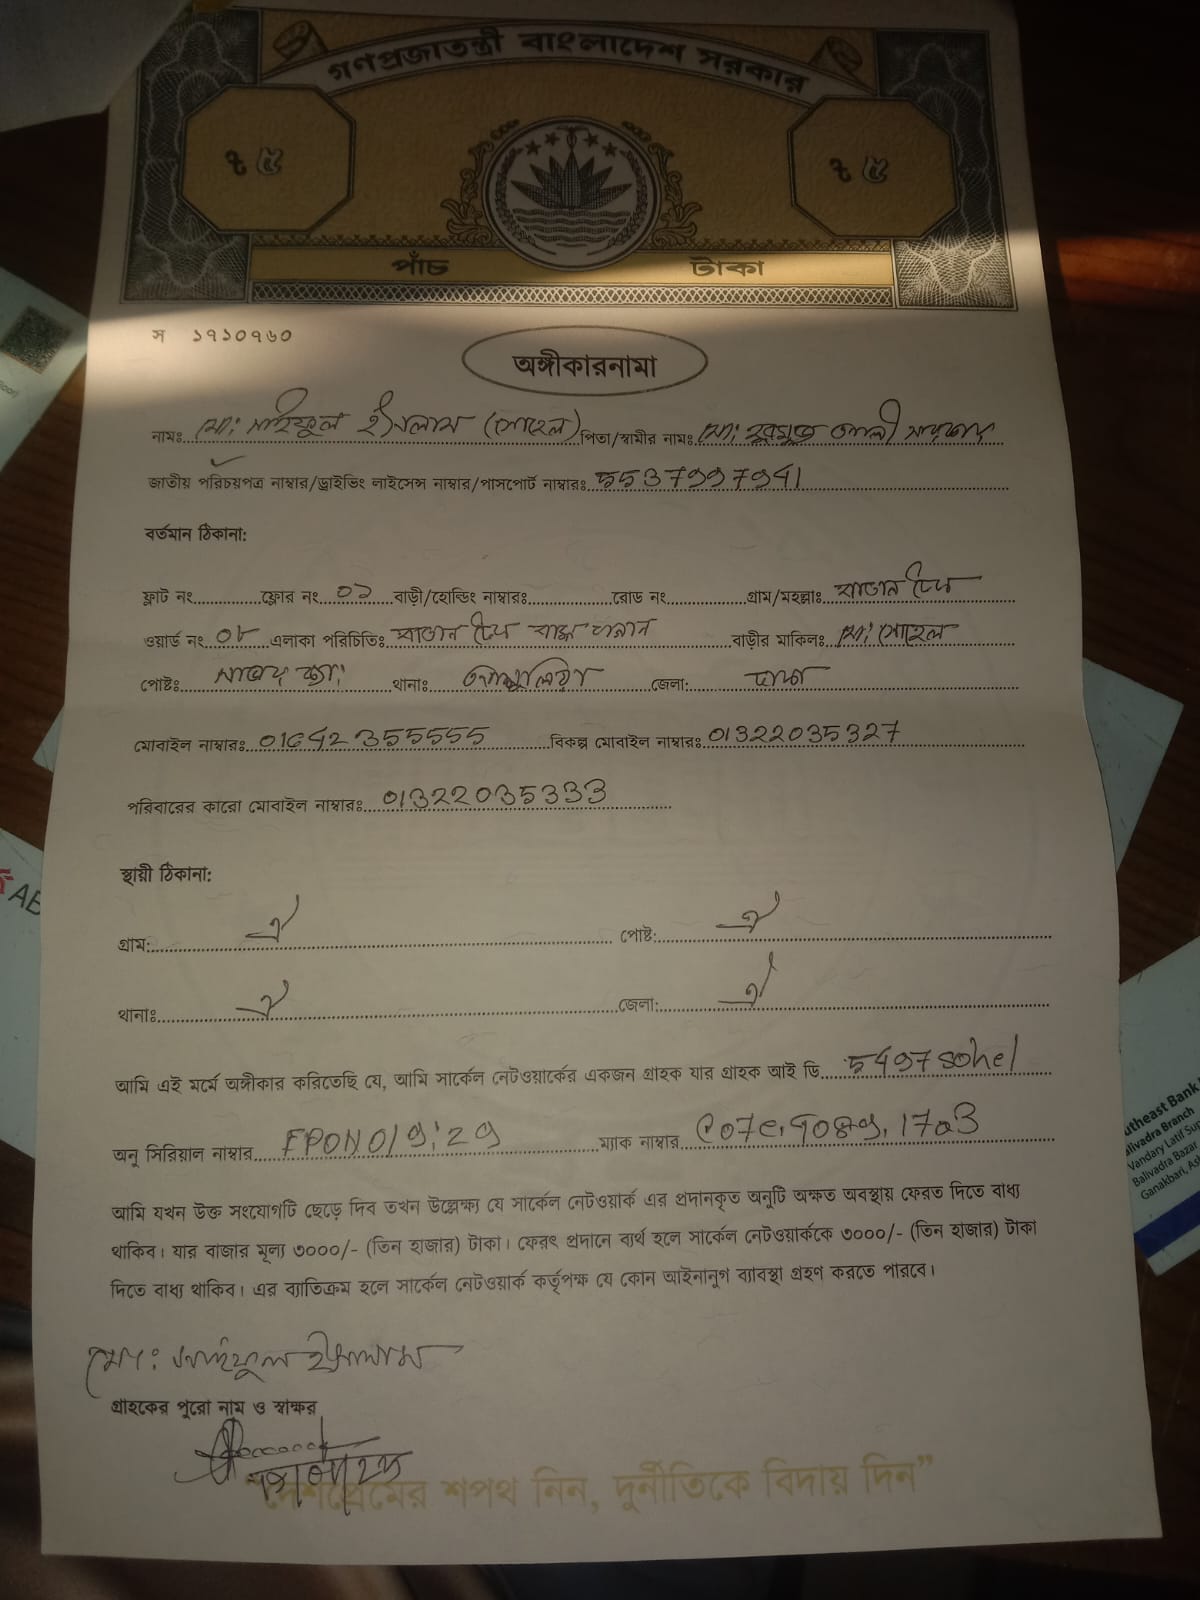 গণপ্রজাতন্ত্রী বাংলাদেশ সরকার
৳ ৫ ৳ ৫
পাঁচ টাকা
স ১৭১০৭৬০
অঙ্গীকারনামা
নামঃ মো: সাইফুল ইসলাম (সোহেল) পিতা/স্বামীর নামঃ মো: আলী
জাতীয় পরিচয়পত্র নাম্বার/ড্রাইভিং লাইসেন্স নাম্বার/পাসপোর্ট নাম্বারঃ
বর্তমান ঠিকানা:
ফ্লাট নং ফ্লোর নং ০১ বাড়ী/হোল্ডিং নাম্বারঃ রোড নং গ্রাম/মহল্লাঃ
ওয়ার্ড নং ০৮ এলাকা পরিচিতিঃ বাড়ীর মালিকঃ মো: সোহেল
পোষ্টঃ থানাঃ আশুলিয়া জেলা: ঢাকা
মোবাইল নাম্বারঃ বিকল্প মোবাইল নাম্বারঃ 01322035327
পরিবারের কারো মোবাইল নাম্বারঃ 01322035333
স্থায়ী ঠিকানা:
গ্রাম: ঐ পোষ্ট: ঐ
থানাঃ ঐ জেলা: ঐ
আমি এই মর্মে অঙ্গীকার করিতেছি যে, আমি সার্কেল নেটওয়ার্কের একজন গ্রাহক যার গ্রাহক আই ডি
অনু সিরিয়াল নাম্বার ম্যাক নাম্বার
আমি যখন উক্ত সংযোগটি ছেড়ে দিব তখন উল্লেক্ষ্য যে সার্কেল নেটওয়ার্ক এর প্রদানকৃত অনুটি অক্ষত অবস্থায় ফেরত দিতে বাধ্য
থাকিব। যার বাজার মূল্য ৩০০০/- (তিন হাজার) টাকা। ফেরৎ প্রদানে ব্যর্থ হলে সার্কেল নেটওয়ার্ককে ৩০০০/- (তিন হাজার) টাকা
দিতে বাধ্য থাকিব। এর ব্যাতিক্রম হলে সার্কেল নেটওয়ার্ক কর্তৃপক্ষ যে কোন আইনানুগ ব্যাবস্থা গ্রহণ করতে পারবে।
মো: সাইফুল ইসলাম
গ্রাহকের পুরো নাম ও স্বাক্ষর
"দেশপ্রেমের শপথ নিন, দুর্নীতিকে বিদায় দিন"
utheast Bank
livadra Branch
Vandary Latif Su
Balivadra Bazar
Ganakbari, As